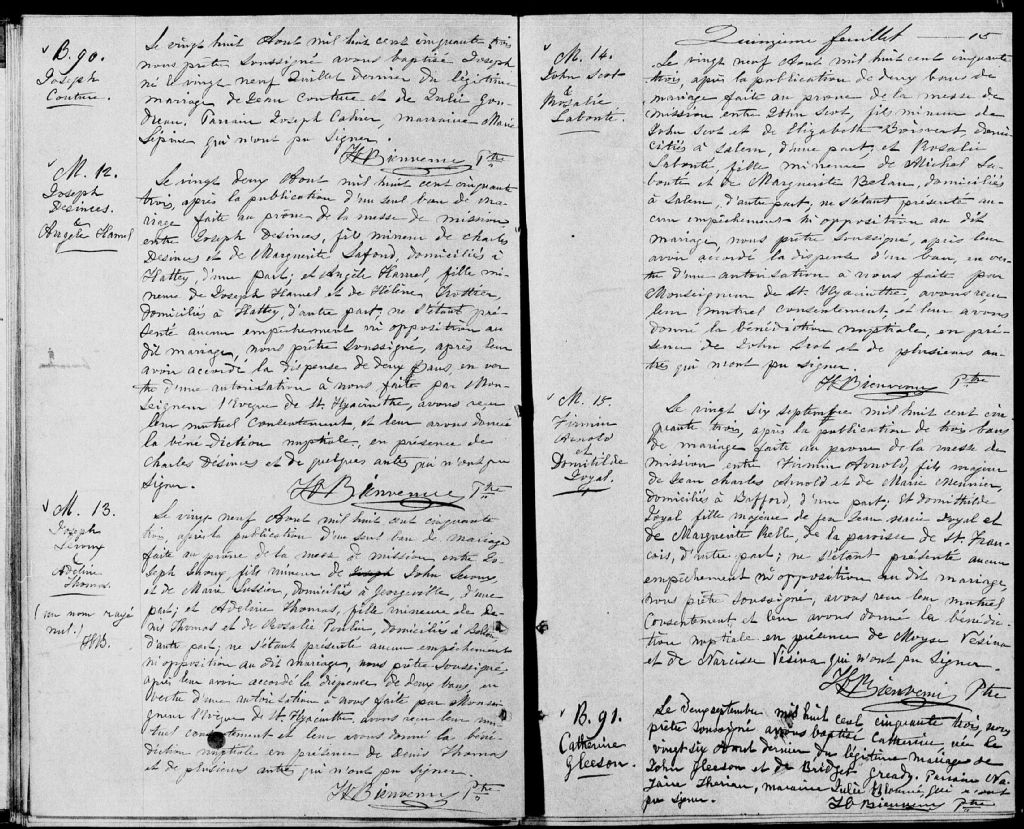 B. 90.
Joseph
Couture.
Le vingt huit Aout mil huit cent cinquante trois
nous prêtre soussigné avons baptisé Joseph
né le vingt neuf Juillet dernier du légitime
mariage de Jean Couture et de Julie Gou-
dreau. Parrain Joseph Cahier, marraine Marie
Lépine qui n'ont pu signer.
Bienvenue Ptre
M. 12.
Joseph
Desinces.
&
Angèle Hamel
Le vingt deux Aout mil huit cent cinquante
trois, après la publication d'un seul ban de ma-
riage faite au prône de la messe de mission
entre Joseph Desinces, fils mineur de Charles
Desinces et de Marguerite Lafond, domiciliés à
Hatley, d'une part; et Angèle Hamel, fille mi-
neure de Joseph Hamel et de Hélène Trottier,
domiciliés à Hatley, d'autre part, ne s'étant pré-
senté aucun empêchement ni opposition au
dit mariage, nous prêtre soussigné, après leur
avoir accordé la dispense de deux bans, en ver-
tu d'une autorisation à nous faite par Mon-
seigneur l'Evêque de St. Hyacinthe, avons reçu
leur mutuel consentement et leur avons donné
la béné diction nuptiale, en présence de
Charles Désinces et de quelques autres qui n'ont pu
signer.
Bienvenue Ptre
M. 13.
Joseph
Leroux
&
Adeline
Thomas.
(un nom rayé
nul.)
HB.
Le vingt neuf Aout mil huit cent cinquante
trois, après la publication d'un seul ban de mariage
faite au prône de la messe de mission entre Jo-
seph Leroux, fils mineur de Joseph John Leroux
et de Marie Lussier, domiciliés à Georgeville, d'une
part; et Adeline Thomas, fille mineure de De-
nis Thomas et de Rosalie Poulin, domiciliés à Bolton
d'autre part; ne s'étant présenté aucun empêchement
ni opposition au dit mariage, nous prêtre soussigné,
après leur avoir accordé la dispense de deux bans, en
vertu d'une autorisation à nous faite par Monsei-
gneur l'Evêque de St. Hyacinthe, avons reçu leur mu-
tuel consentement et leur avons donné la béné-
diction nuptiale en présence de Denis Thomas
et de plusieurs autres qui n'ont pu signer.
Bienvenue Ptre
Quinzième feuillet 15
M. 14.
John Scot
&
Rosalie
Labonté.
Le vingt neuf Aout mil huit cent cinquante
trois, après la publication de deux bans de
mariage faite au prône de la messe de
mission entre John Scot, fils mineur de
John Scot et de Elizabeth Boisvert, domi-
ciliés à Salem, d'une part, et Rosalie
Labonté, fille mineure de Michel La-
bonté et de Marguerite, domiciliés
à Salem, d'autre part, ne s'étant présenté au-
cun empêchement ni opposition au dit
mariage, nous prêtre soussigné, après leur
avoir accordé la dispense d'un ban, en ver-
tu d'une autorisation à nous faite par
Monseigneur de St. Hyacinthe, avons reçu
leur mutuel consentement, et leur avons
donné la bénédiction nuptiale, en pré-
sence de John Scot et de plusieurs au-
tres qui n'ont pu signer.
Bienvenue Ptre
M. 15.
Firmin
Arnold
et
Domitilde
Goyal.
Le vingt six septembre mil huit cent cin-
quante trois, après la publication de trois bans
de mariage faite au prône de la messe de
mission entre Firmin Arnold, fils majeur
de Jean Charles Arnold et de Marie Meunier,
domiciliés à, d'une part; et domithilde
Goyal fille majeure de feu Jean Marie Goyal et
de Marguerite, de la paroisse de St. Fran-
cois, d'autre part; ne s'étant présenté aucun
empêchement ni opposition au dit mariage,
nous prêtre soussigné, avons reçu leur mutuel
consentement et leur avons donné la bénédic-
tion nuptiale en présence de Moyse Vesina
et de Narcisse Vesina qui n'ont pu signer.
Bienvenue Ptre
B. 91.
Catherine
Gleeson.
Le deux septembre mil huit cent cinquante trois, nous
prêtre soussigné avons baptisé Catherine, née le
vingt six Aout dernier du légitime mariage de
John Gleeson et de Bridget Gready. Parrain Na-
zaire Therien, marraine Julie, qui n'ont
pu signer.
Bienvenue Ptre